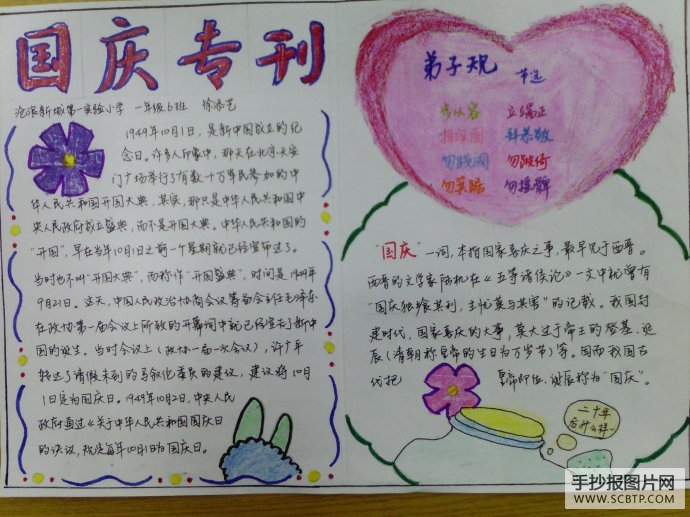 国庆专刊
沧浪新城第一实验小学 一年级6班 徐添艺
1949年10月1日,是新中国成立的纪
念日。许多人印象中,那天在北京天安
门广场举行了有数十万军民参加的中
华人民共和国开国大典。其实,那只是中华人民共和国中
央人民政府成立盛典,而不是开国大典。中华人民共和国的
"开国",早在当年10月1日之前一个星期就已经宣布过了。
当时也不叫"开国大典",而称作"开国盛典",时间是1949年
9月21日。这天,中国人民政治协商会议筹备会主任毛泽东
在政协第一届会议上所致的开幕词中就已经宣告了新中
国的诞生。当时会议上(政协一届一次会议),许广平
转达了请假未到的马叙伦委员的建议,建议将10月
1日定为国庆日。1949年10月2日,中央人民
政府通过《关于中华人民共和国国庆日
的决议,规定每年10月1日为国庆日。
弟子规 节选
步从容 立端正
揖深圆 拜恭敬
勿践阈 勿跛倚
勿箕踞 勿摇髀
"国庆"一词,本指国家喜庆之事,最早见于西晋。
西晋的文学家陆机在《五等诸侯论》一文中就曾有
"国庆独飨其利,主忧莫与其害"的记载。我国封
建时代,国家喜庆的大事,莫大过于帝王的登基、诞
辰(清朝称皇帝的生日为万岁节)等。因而我国古
代把 皇帝即位、诞辰称为"国庆"。
二十年
后什么样~
手抄报图片网
WWW.SCBTP.COM